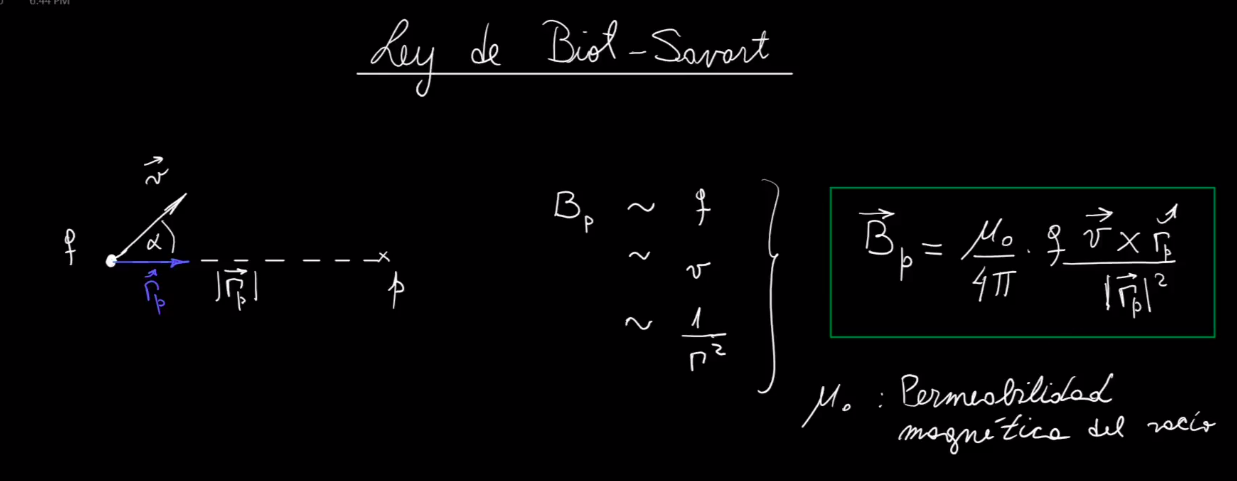 6:44 PM
Ley de Biot-Savart
v⃗
q α
r̆p |r⃗p| p
Bp ~ q
~ v
~ 1/r²
B⃗p = μ₀/4π · q v⃗ × r̆p / |r⃗p|²
μ₀ : Permeabilidad
magnética del vacío